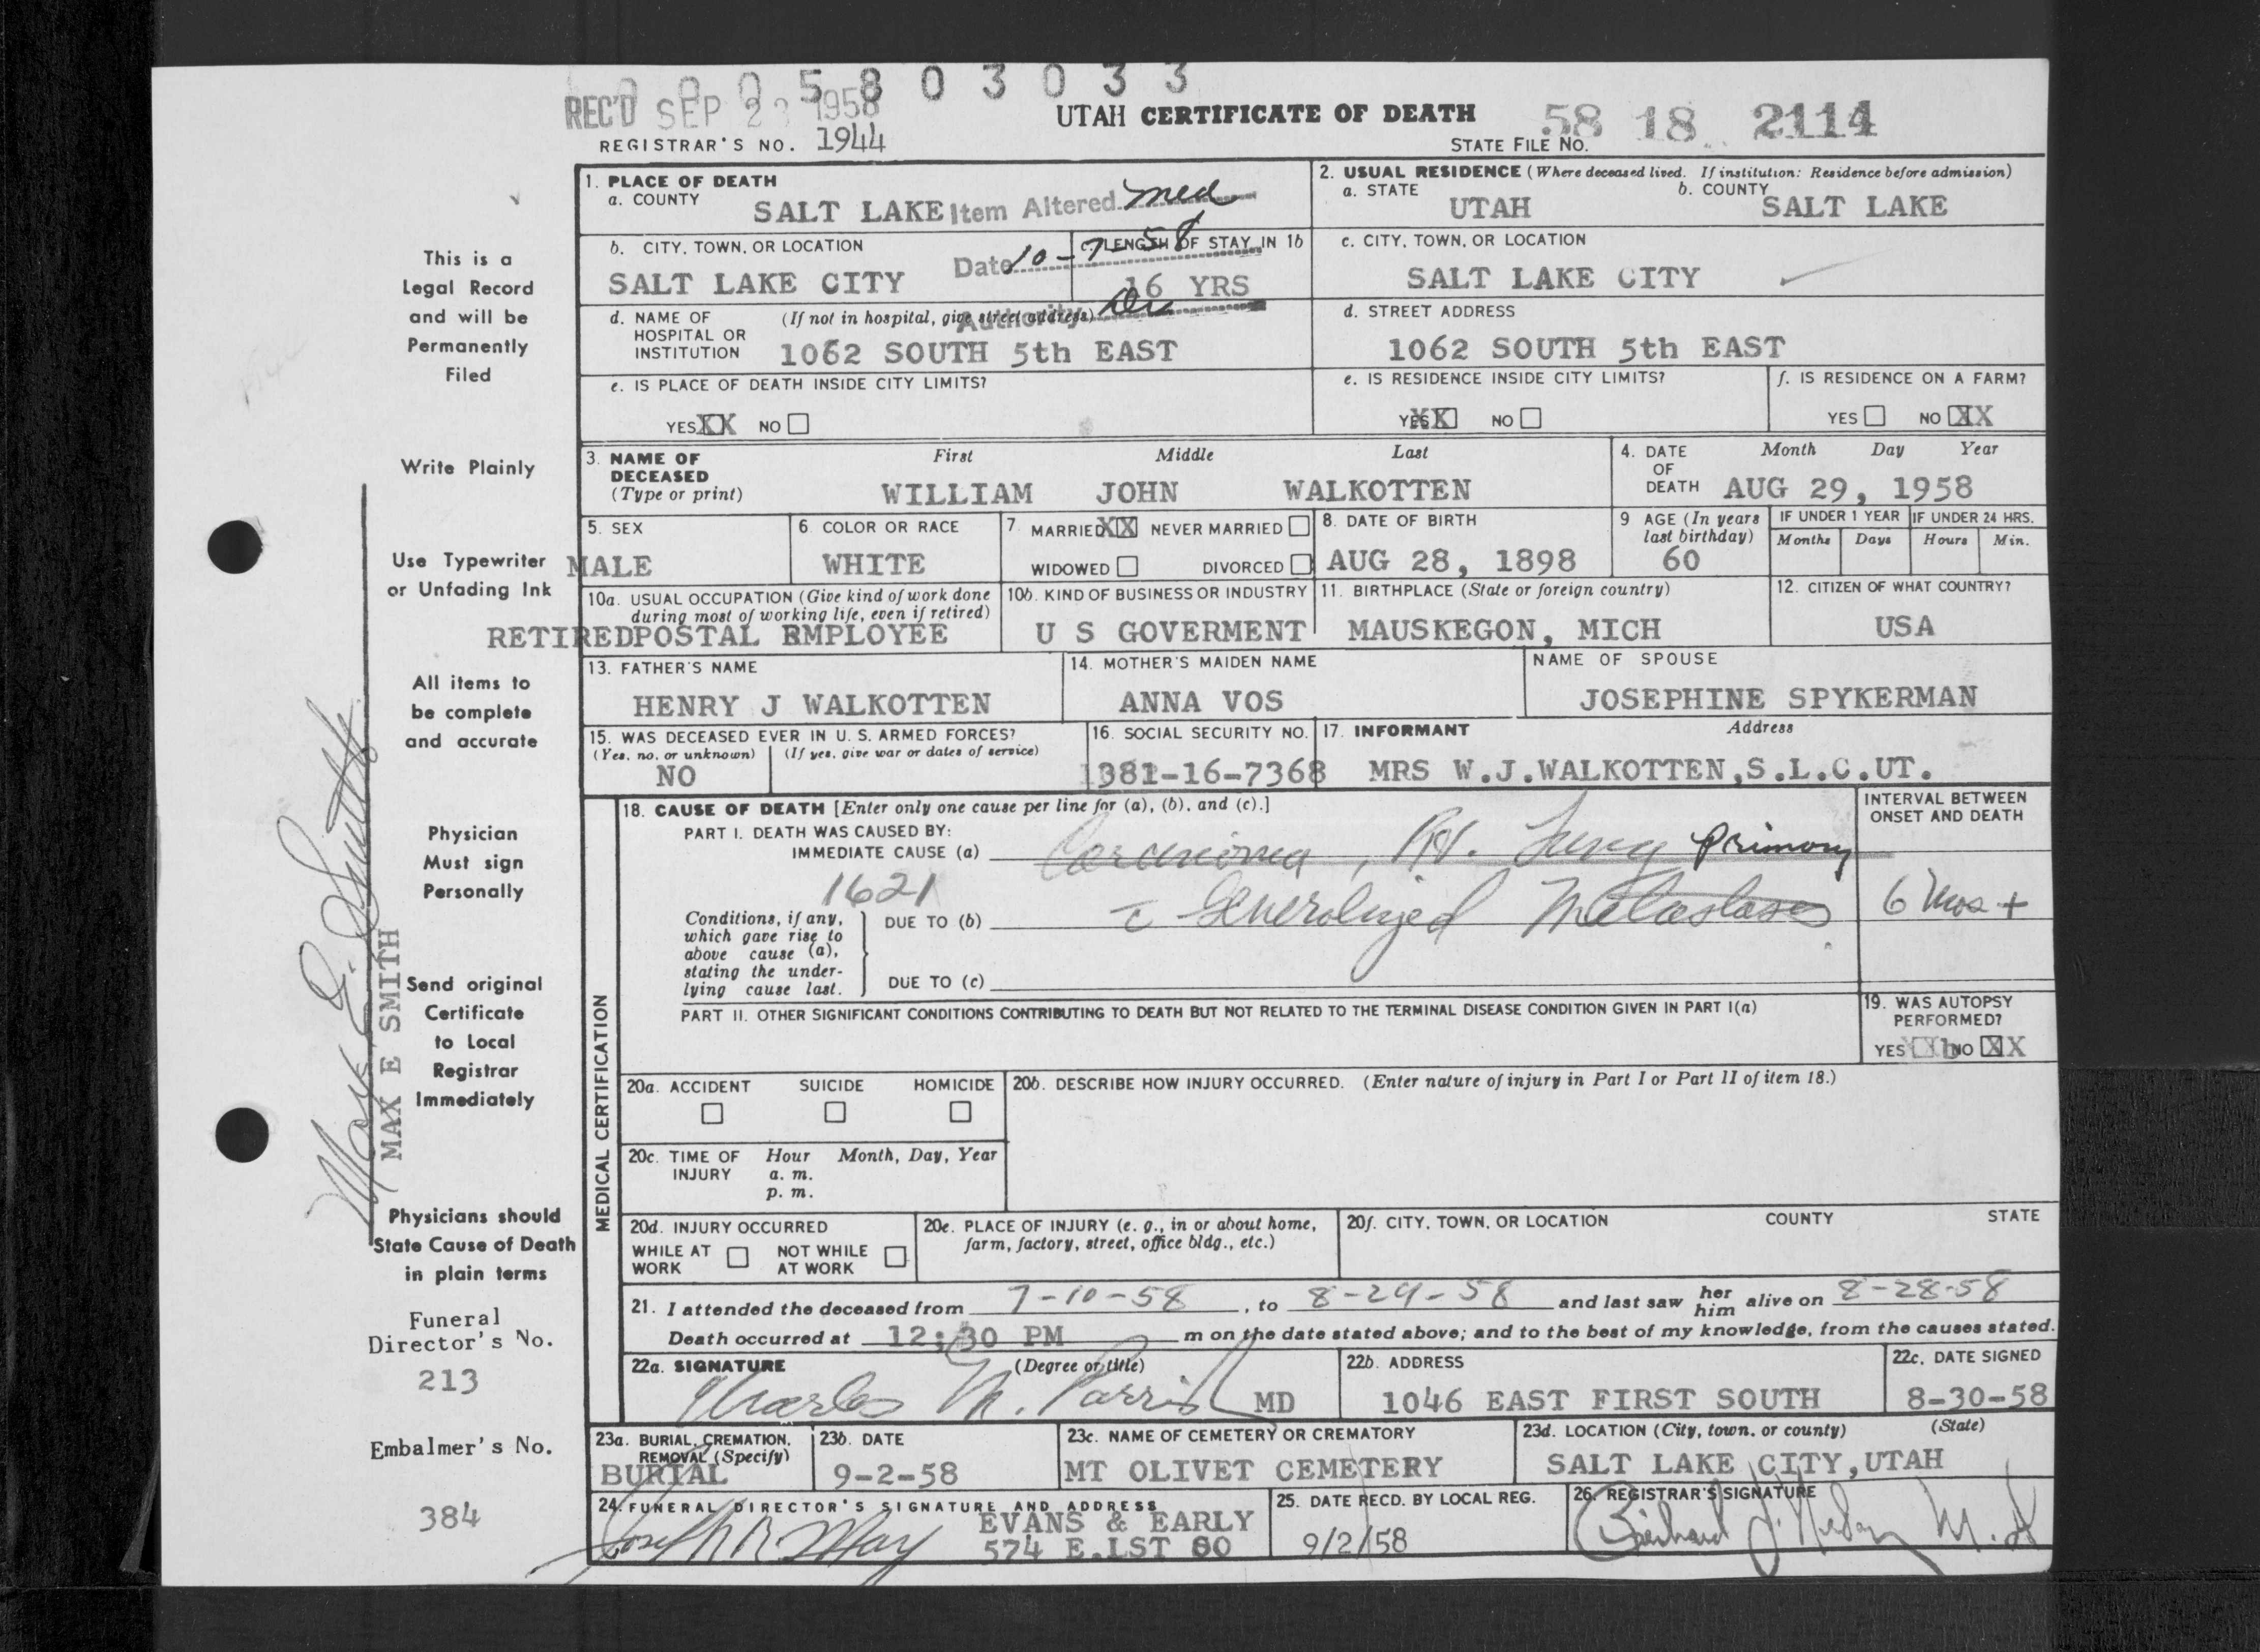 0 0 0 5 8 0 3 0 3 3
REC'D SEP 23 1958
UTAH CERTIFICATE OF DEATH
58 18 2114
REGISTRAR'S NO. 1944
STATE FILE NO.
1. PLACE OF DEATH
a. COUNTY
SALT LAKE
Item Altered med
2. USUAL RESIDENCE (Where deceased lived. If institution: Residence before admission)
a. STATE
UTAH
b. COUNTY
SALT LAKE
b. CITY, TOWN, OR LOCATION
SALT LAKE CITY
Date 10-7-58
c. LENGTH OF STAY IN 1b
16 YRS
c. CITY, TOWN, OR LOCATION
SALT LAKE CITY
d. NAME OF HOSPITAL OR INSTITUTION
(If not in hospital, give street address)
Authority Dr
1062 SOUTH 5th EAST
d. STREET ADDRESS
1062 SOUTH 5th EAST
e. IS PLACE OF DEATH INSIDE CITY LIMITS?
YES XX NO
e. IS RESIDENCE INSIDE CITY LIMITS?
YES XX NO
f. IS RESIDENCE ON A FARM?
YES NO XX
3. NAME OF DECEASED
(Type or print)
First Middle Last
WILLIAM JOHN WALKOTTEN
4. DATE OF DEATH
Month Day Year
AUG 29, 1958
5. SEX
MALE
6. COLOR OR RACE
WHITE
7. MARRIED XX NEVER MARRIED
WIDOWED DIVORCED
8. DATE OF BIRTH
AUG 28, 1898
9 AGE (In years last birthday)
60
IF UNDER 1 YEAR
Months Days
IF UNDER 24 HRS.
Hours Min.
10a. USUAL OCCUPATION (Give kind of work done during most of working life, even if retired)
RETIREDPOSTAL EMPLOYEE
10b. KIND OF BUSINESS OR INDUSTRY
U S GOVERMENT
11. BIRTHPLACE (State or foreign country)
MAUSKEGON, MICH
12. CITIZEN OF WHAT COUNTRY?
USA
13. FATHER'S NAME
HENRY J WALKOTTEN
14. MOTHER'S MAIDEN NAME
ANNA VOS
NAME OF SPOUSE
JOSEPHINE SPYKERMAN
15. WAS DECEASED EVER IN U. S. ARMED FORCES?
(Yes, no, or unknown) (If yes, give war or dates of service)
NO
16. SOCIAL SECURITY NO.
381-16-7368
17. INFORMANT Address
MRS W.J.WALKOTTEN,S.L.C.UT.
MEDICAL CERTIFICATION
18. CAUSE OF DEATH [Enter only one cause per line for (a), (b), and (c).]
PART I. DEATH WAS CAUSED BY:
IMMEDIATE CAUSE (a) Carcinoma, Rt. Lung primary
1621
Conditions, if any, which gave rise to above cause (a), stating the underlying cause last.
DUE TO (b) c Generalized Metastases
DUE TO (c)
INTERVAL BETWEEN ONSET AND DEATH
6 Mos +
PART II. OTHER SIGNIFICANT CONDITIONS CONTRIBUTING TO DEATH BUT NOT RELATED TO THE TERMINAL DISEASE CONDITION GIVEN IN PART I(a)
19. WAS AUTOPSY PERFORMED?
YES NO XX
20a. ACCIDENT SUICIDE HOMICIDE
20b. DESCRIBE HOW INJURY OCCURRED. (Enter nature of injury in Part I or Part II of item 18.)
20c. TIME OF INJURY
Hour Month, Day, Year
a. m.
p. m.
20d. INJURY OCCURRED
WHILE AT WORK NOT WHILE AT WORK
20e. PLACE OF INJURY (e. g., in or about home, farm, factory, street, office bldg., etc.)
20f. CITY, TOWN, OR LOCATION COUNTY STATE
21. I attended the deceased from 7-10-58, to 8-29-58 and last saw her him alive on 8-28-58
Death occurred at 12:30 PM m on the date stated above; and to the best of my knowledge, from the causes stated.
22a. SIGNATURE (Degree or title)
Charles M. Parrish MD
22b. ADDRESS
1046 EAST FIRST SOUTH
22c. DATE SIGNED
8-30-58
23a. BURIAL, CREMATION, REMOVAL (Specify)
BURIAL
23b. DATE
9-2-58
23c. NAME OF CEMETERY OR CREMATORY
MT OLIVET CEMETERY
23d. LOCATION (City, town, or county) (State)
SALT LAKE CITY,UTAH
24. FUNERAL DIRECTOR'S SIGNATURE AND ADDRESS
EVANS & EARLY
574 E.LST SO
25. DATE RECD. BY LOCAL REG.
9/2/58
26. REGISTRAR'S SIGNATURE
This is a
Legal Record
and will be
Permanently
Filed
Write Plainly
Use Typewriter
or Unfading Ink
All items to
be complete
and accurate
Physician
Must sign
Personally
Send original
Certificate
to Local
Registrar
Immediately
Physicians should
State Cause of Death
in plain terms
Funeral
Director's No.
213
Embalmer's No.
384
Max E. Smith
MAX E SMITH